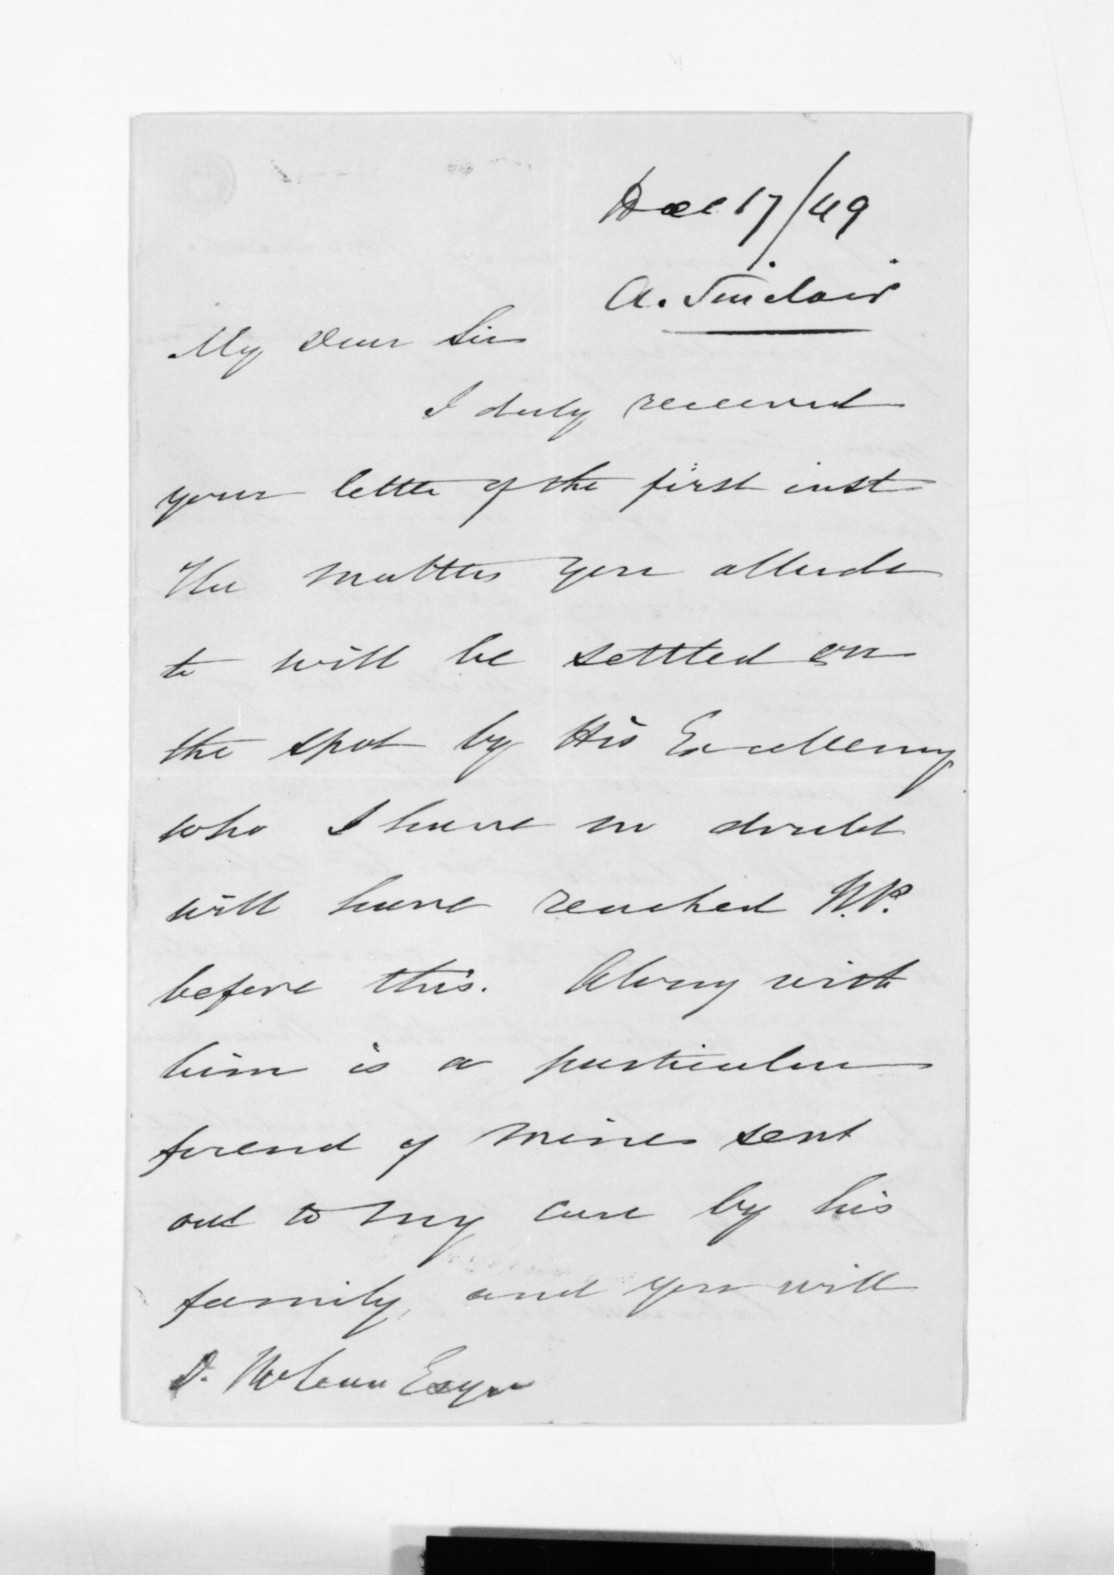 Dec 17/49
A. Sinclair
My Dear Sir
I duly received
your letter of the first inst
The matters you allude
to will be settled on
the spot by His Excellency
who I have no doubt
will have reached N.P.
before this. Along with
him is a particular
freind of mine sent
out to my care by his
family, and you will
D. McLean Esqr